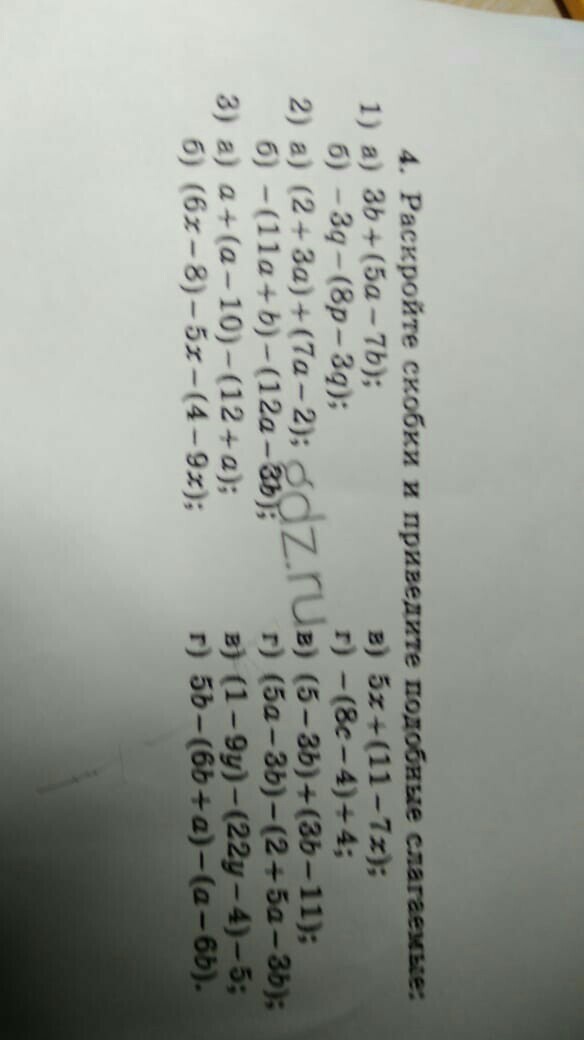 4. Раскройте скобки и приведите подобные слагаемые:
1) а) 3b + (5a − 7b); в) 5x + (11 − 7x);
б) −3q − (8p − 3q); г) −(8c − 4) + 4;
2) а) (2 + 3a) + (7a − 2); в) (5 − 3b) + (3b − 11);
б) −(11a + b) − (12a − 3b); г) (5a − 3b) − (2 + 5a − 3b);
3) а) a + (a − 10) − (12 + a); в) (1 − 9y) − (22y − 4) − 5;
б) (6x − 8) − 5x − (4 − 9x); г) 5b − (6b + a) − (a − 6b).
gdz.ru